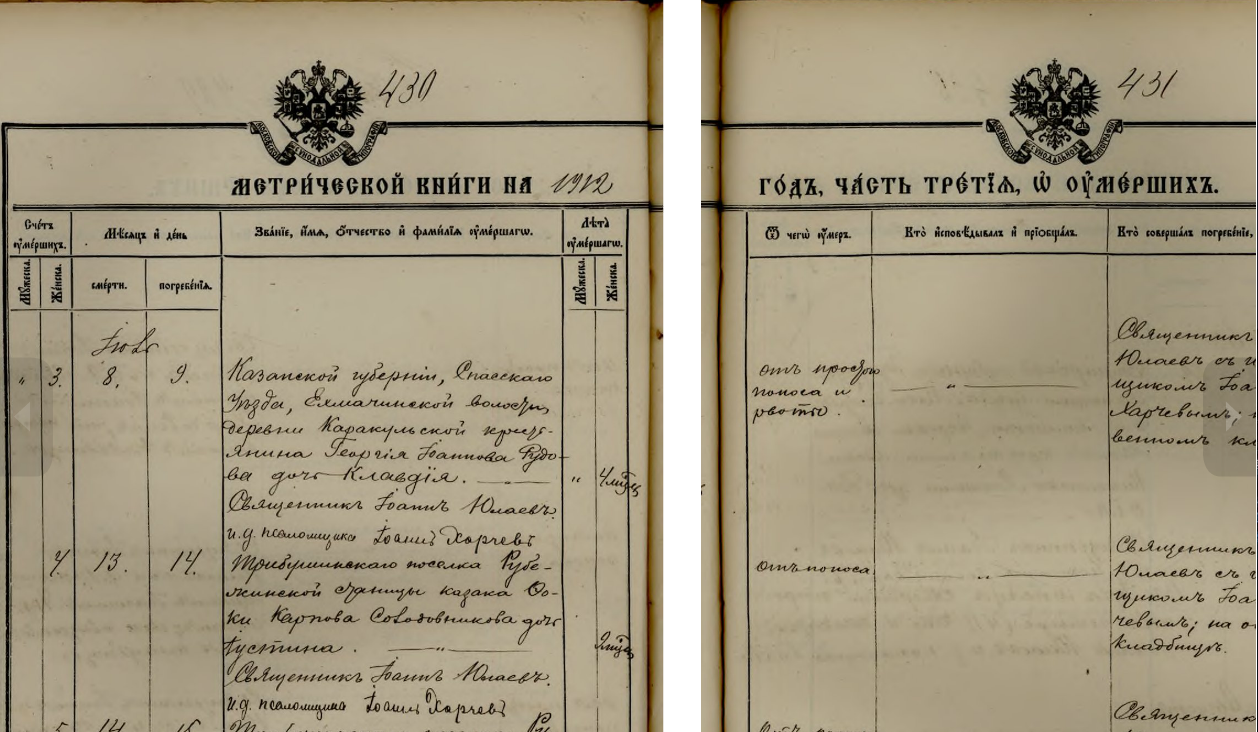 430
МОСКОВСКОЙ СѴНОДАЛЬНОЙ ТИПОГРАФІИ
МЕТРИ́ЧЕСКОЙ КНИ́ГИ НА 1912
Счетъ ᲂу҆ме́ршихъ.
Мѣ́сѧцъ и҆ де́нь
Зва́нїе, и҆́мѧ, ѻ҆́тчество и҆ фами́лїѧ ᲂу҆ме́ршагѡ.
Лѣ́та ᲂу҆ме́ршагѡ.
Мꙋ́жеска.
Же́нска.
сме́рти.
погребе́нїѧ.
Мꙋ́жеска.
Же́нска.
Іюль
" 3. 8. 9. Казанской губерніи, Спасскаго
уѣзда, Елмачинской волости,
деревни Каракульской кресть-
янина Георгія Іоаннова Рудо-
ва дочь Клавдія. " 4 мѣсяц
Священникъ Іоаннъ Юлаевъ.
и.д. псаломщика Іоаннъ Харчевъ
4. 13. 14. Трибушинскаго поселка Рубе-
жинской станицы казака Ѳо-
ки Карпова Солодовникова дочь
Іустина. 2 мѣсяц
Священникъ Іоаннъ Юлаевъ.
и.д. псаломщика Іоаннъ Харчевъ
5 14 15
431
МОСКОВСКОЙ СѴНОДАЛЬНОЙ ТИПОГРАФІИ
ГО́ДЪ, ЧА́СТЬ ТРЕ́ТЇѦ, Ѡ҆ ОУ҆МЕ́РШИХЪ.
Ѿ чегѡ̀ ᲂу҆́меръ.
Кто̀ и҆сповѣ́дывалъ и҆ прїѡбща́лъ.
Кто̀ соверша́лъ погребе́нїе,
отъ простого
поноса и
рвоты.
"
Священникъ
Юлаевъ съ и
щикомъ Іоа
Харчевымъ; н
венномъ кл
отъ поноса
"
Священникъ
Юлаевъ съ
щикомъ Іоа
чевымъ; на о
кладбищѣ.
Священник